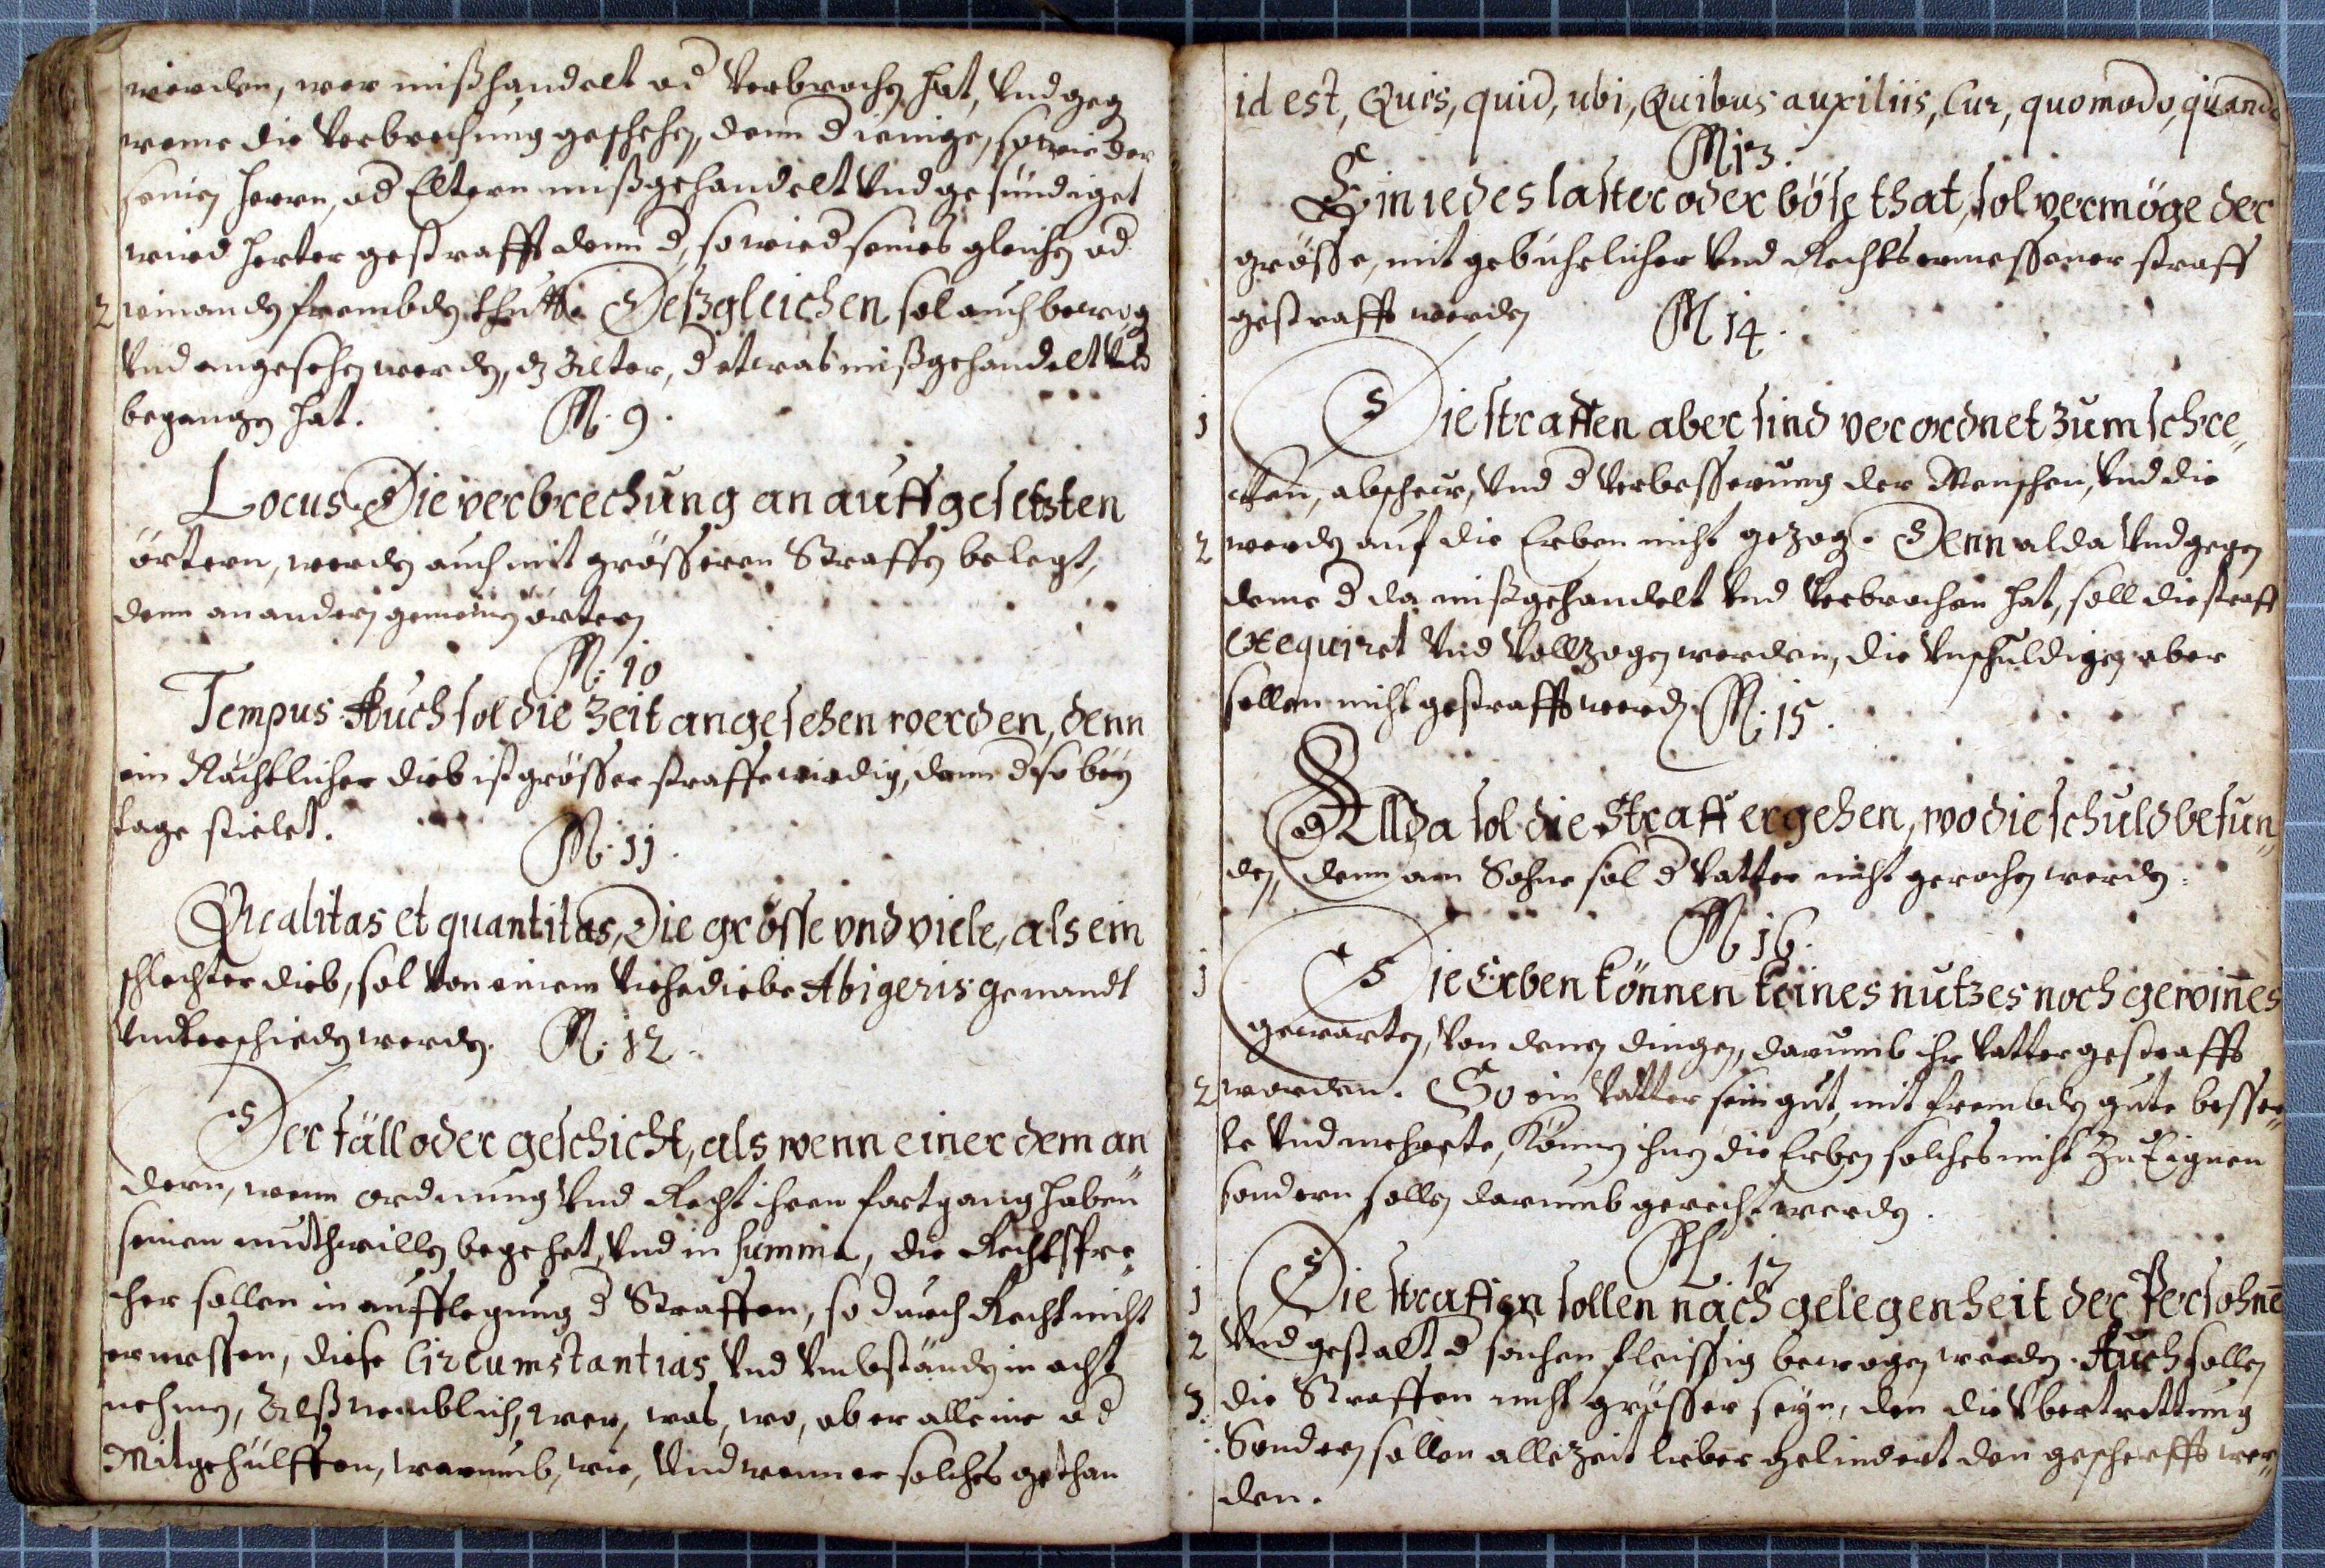 werden, wer mißhandelt od verbrochen hat, vnd geg
weme die verbrechung geschehen, denn d ienige, so wieder
seinen Herrn, od Eltern mißgehandelt vnd gesündiget
wird herter gestrafft denn d, so wied seines gleichen od
2 iemanden frembden thutt. Deßgleichen sol auch bewog
vnd angesehen werden, dz Alter, d etwas mißgehandelt vnd
begangen hat. N. 9.
Locus Die verbrechung an auffgesetzten
örtern, werden auch mit grösseren Straffen belegt,
denn an andern gemeinen örtern
N. 10
Tempus Auch sol die Zeit angesehen werden, denn
ein Nächtlicher dieb ist grösser straffe wirdig, denn d so bey
tage stielet.
N. 11.
Qualitas et quantitas, Die grösse vnd viele, als ein
schlechter dieb, sol von einem Viehediebe Abigeris genandt
vnterschieden werden. N. 12.
Der fäll oder geschicht, als wenn einer dem an
dern, wenn ordnung vnd Recht ihren fortgang haben
seinen muthwillen begehet, vnd in summa, die Rechtspre
cher sollen in aufflegung d Straffen, so durch Recht nicht
ermessen, diese Circumstantias vnd vmbständen in acht
nehmen, Alß nemblich, wer, was, wo, ob er alleine od
Mitgehülffen, warumb, wie, vnd wenn er solches gethan
id est, Quis, quid, ubi, Quibus auxiliis, Cur, quomodo, quando
N 13.
Ein iedes laster oder böse that, sol vermöge der
grösse, mit gebührlicher vnd Rechts ermessener straff
gestrafft werden N 14.
1 Die straffen aber sind verordnet zum schre„
cken, abschew, vnd d verbesserung der Menschen, vnd die
2 werden auf die Erben nicht gezog. Denn alda vnd gegen
deme d da mißgehandelt vnd verbrochen hat, soll die straff
Exequiret vnd vollzogen werden, die vnschuldigen aber
sollen nicht gestrafft werd. N. 15.
Allda sol die Straff ergehen, wo die schuld befun„
den, denn am Sohne sol d Vatter nicht gerochen werden.
N 16.
1 Die Erben können keines nutzes noch gewin̄es
gewarten, von denen dingen, darumb ihr Vatter gestrafft
2 worden. So ein Vatter sein gut, mit frembden gute besser„
te vnd mehrete, können ihnen die Erben solches nicht Zu Eignen
sondern sollen darumb gerecht werden.
N. 17
1 Die straffen sollen nach gelegenheit der Persohnē
2 vnd gestalt d sachen fleissig bewogen werden. Auch sollen
3. die Straffen nicht grösser seyn, den die vbertrettung
Sondern sollen allezeit lieber gelindert den gescherfft wer„
den.